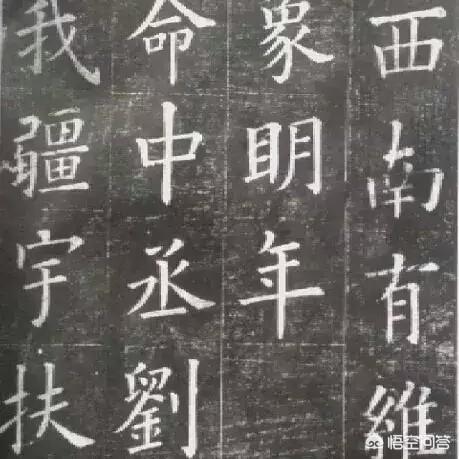 西南有維
象明年
命中丞劉
我疆宇扶
悟空问答